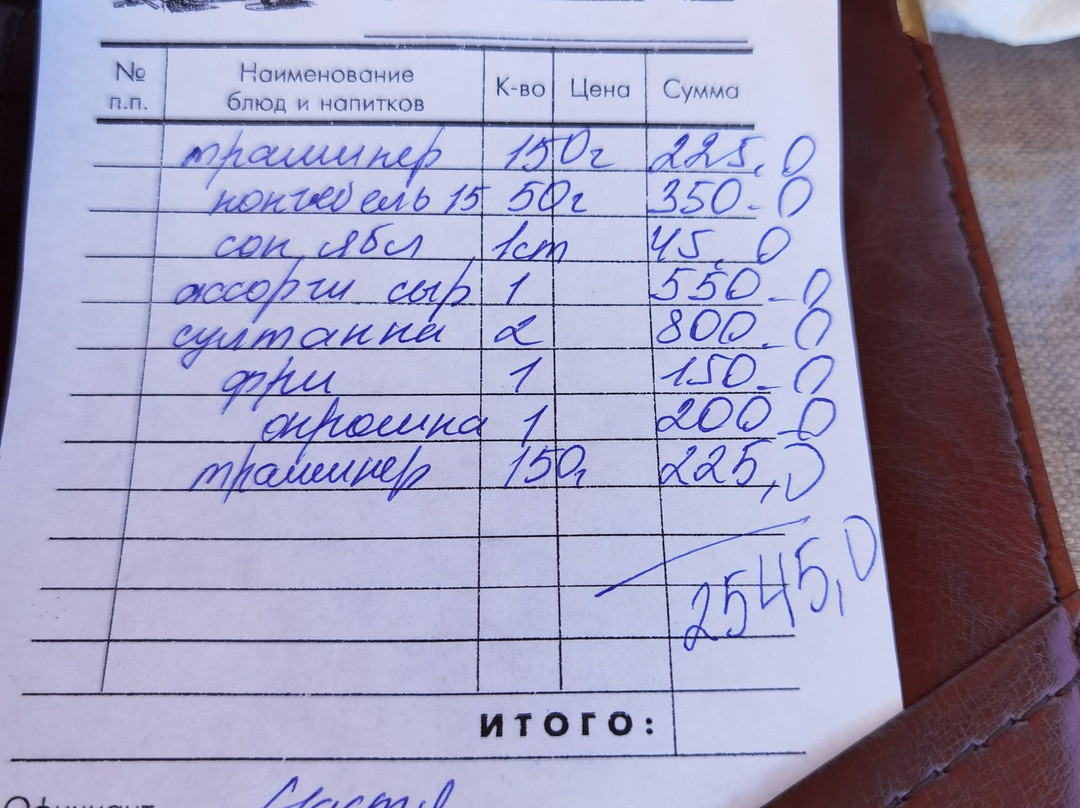 № п.п. Наименование блюд и напитков К-во Цена Сумма
траминер 150г 225,0
коктебель 15 50г 350-0
сок ябл 1ст 45,0
ассорти сыр 1 550-0
султанка 2 800-0
фри 1 150-0
окрошка 1 200-0
траминер 150г 225,0
2545,0
ИТОГО:
Официант